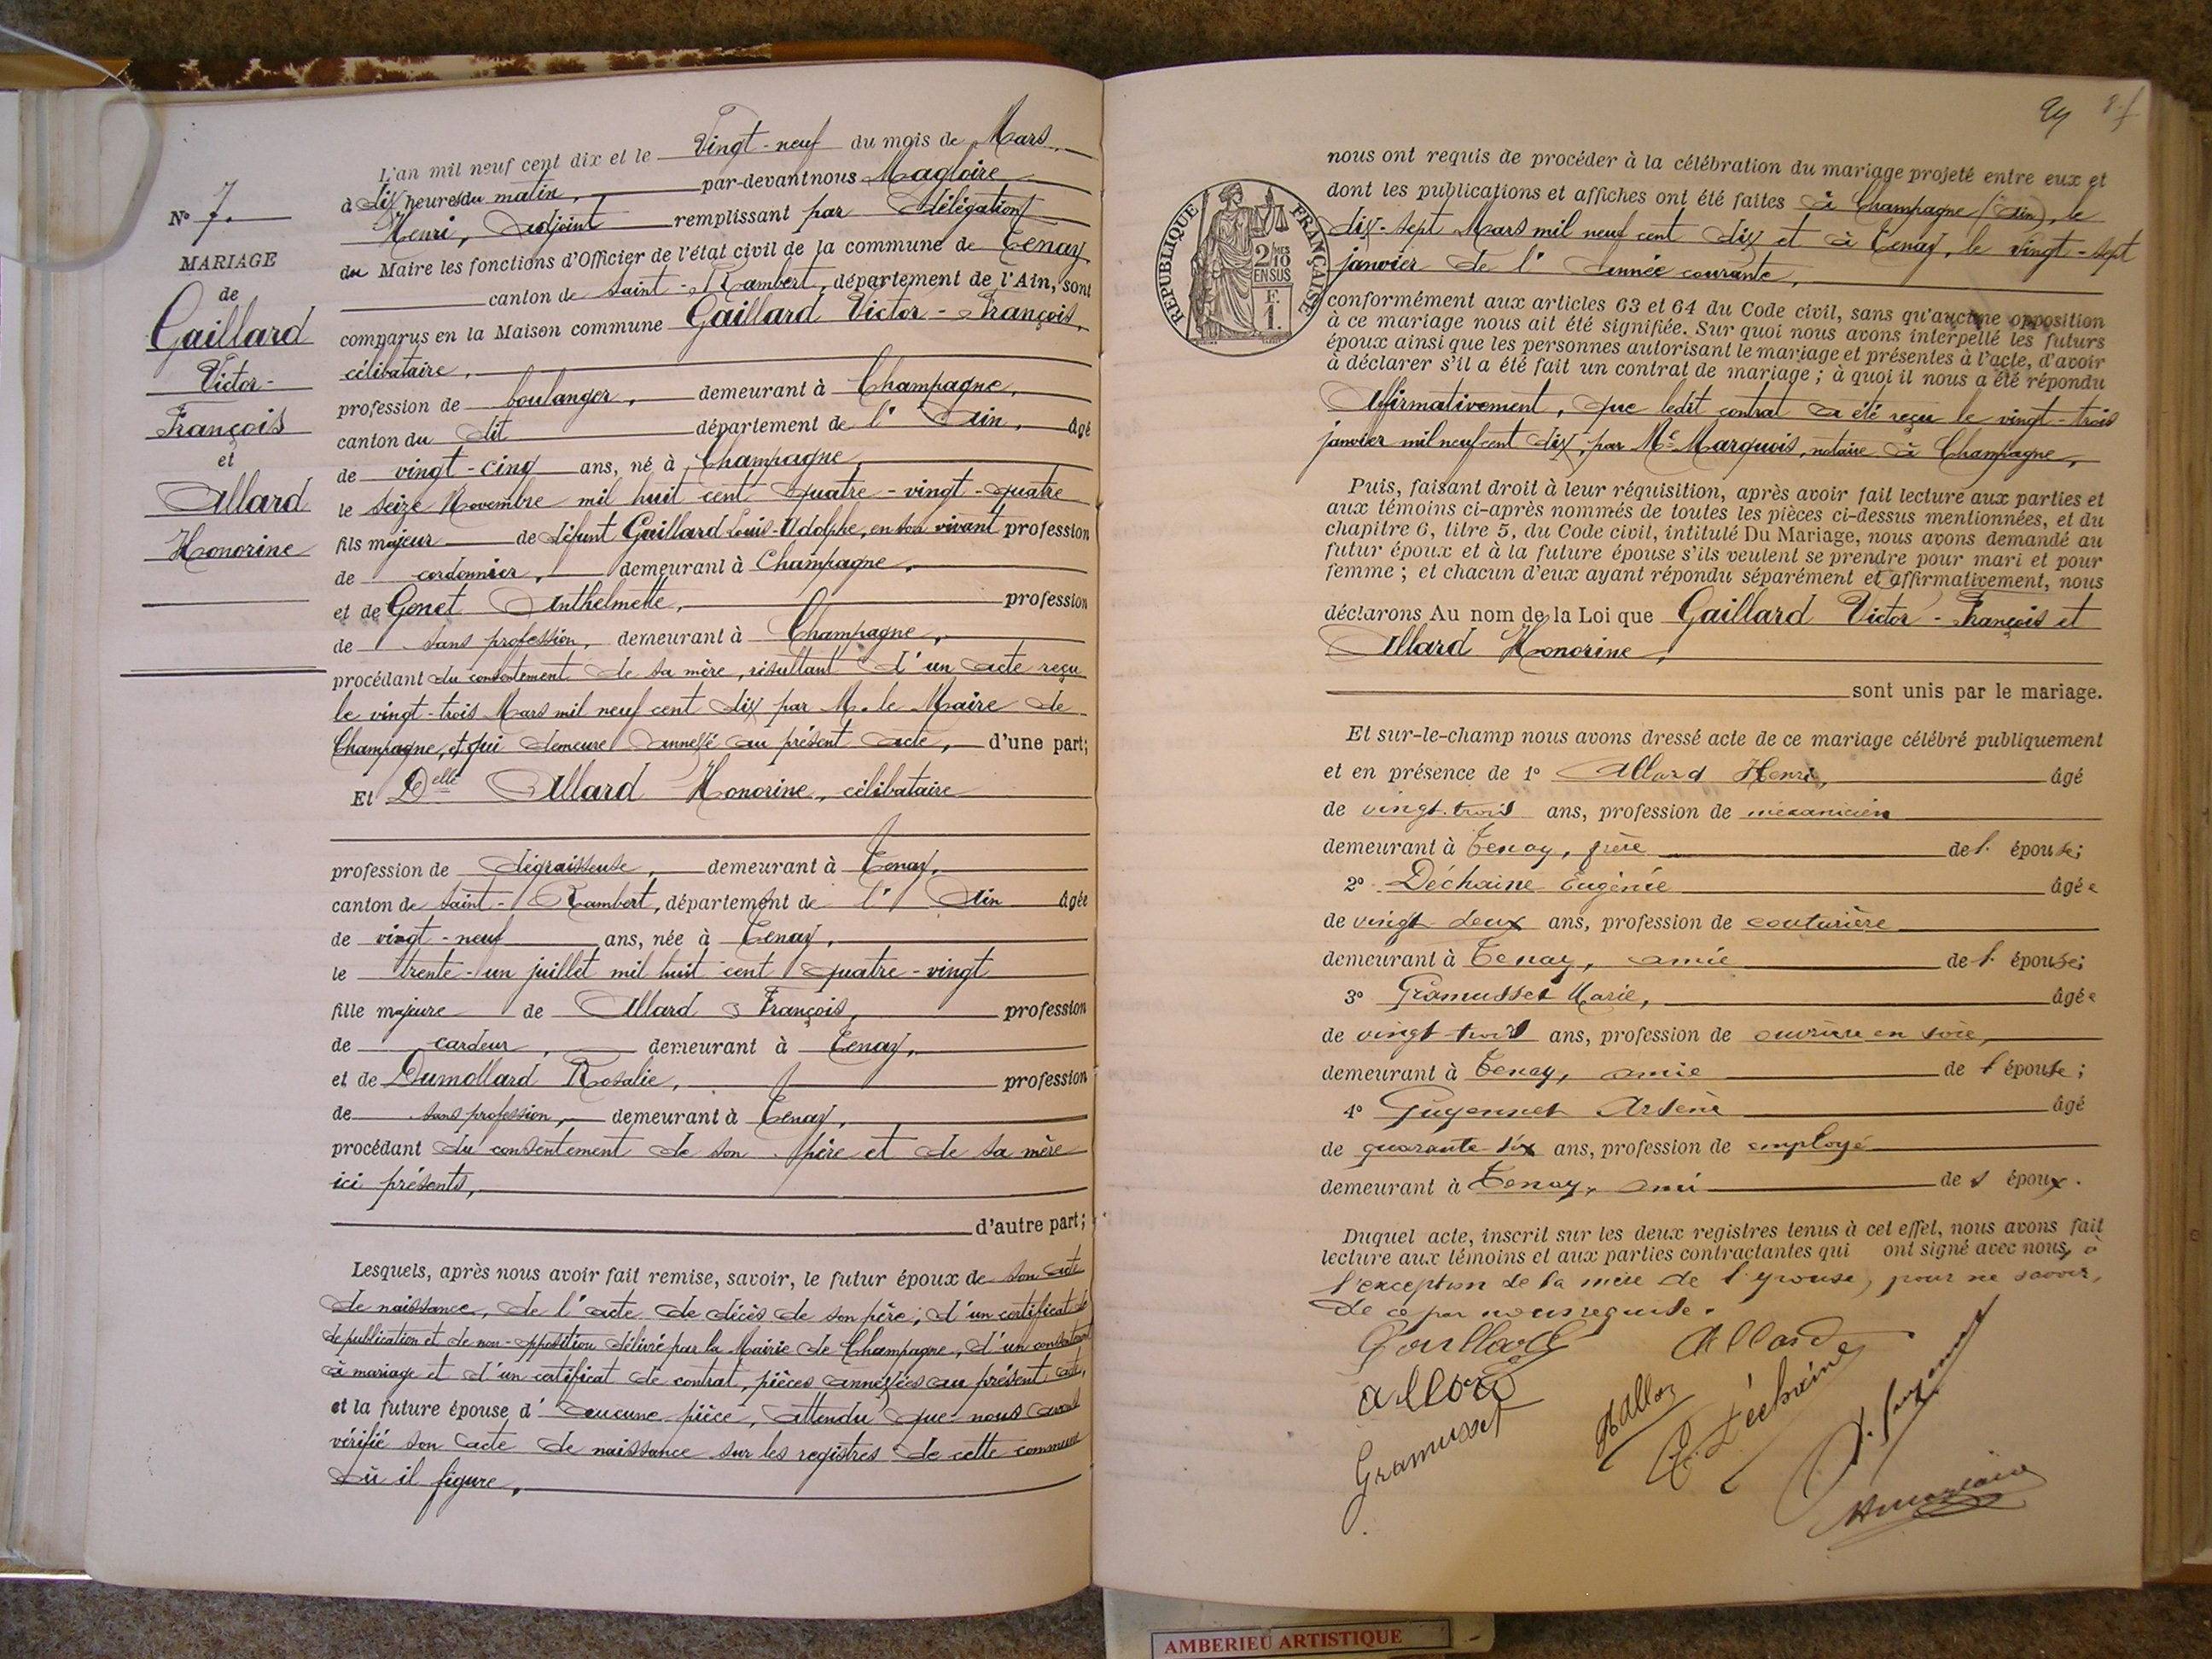 L'an mil neuf cent dix et le Vingt-neuf du mois de Mars
à dix heures du matin, par-devant nous Magloire
Henri, adjoint remplissant par délégation
du Maire les fonctions d'Officier de l'état civil de la commune de Tenay,
canton de Saint-Rambert, département de l'Ain, sont
comparus en la Maison commune Gaillard Victor-François,
célibataire,
profession de boulanger, demeurant à Champagne,
canton du dit département de l'Ain, âgé
de vingt-cinq ans, né à Champagne
le seize Novembre mil huit cent quatre-vingt-quatre
fils majeur de défunt Gaillard Louis-Adolphe, en son vivant profession
de cordonnier, demeurant à Champagne,
et de Gonet Anthelmette, profession
de sans profession, demeurant à Champagne,
procédant du consentement de sa mère, résultant d'un acte reçu
le vingt-trois Mars mil neuf cent dix par M. le Maire de
Champagne, et qui demeure annexé au présent acte, d'une part;
Et Delle Allard Honorine, célibataire
profession de dégraisseuse, demeurant à Tenay,
canton de Saint-Rambert, département de l'Ain âgée
de vingt-neuf ans, née à Tenay,
le trente-un juillet mil huit cent quatre-vingt
fille majeure de Allard François, profession
de cardeur, demeurant à Tenay,
et de Dumollard Rosalie, profession
de sans profession, demeurant à Tenay,
procédant du consentement de son père et de sa mère
ici présents,
d'autre part;
Lesquels, après nous avoir fait remise, savoir, le futur époux de son acte
de naissance, de l'acte de décès de son père; d'un certificat de
de publication et de non-opposition délivré par la Mairie de Champagne, d'un consentement
à mariage et d'un certificat de contrat, pièces annexées au présent acte,
et la future épouse d'aucune pièce, attendu que nous avons
vérifié son acte de naissance sur les registres de cette commune
où il figure,
N° 7.
MARIAGE
de
Gaillard
Victor-
François
et
Allard
Honorine
nous ont requis de procéder à la célébration du mariage projeté entre eux et
dont les publications et affiches ont été faites à Champagne (Ain), le
dix-sept Mars mil neuf cent dix et à Tenay, le vingt-sept
janvier de l'année courante,
conformément aux articles 63 et 64 du Code civil, sans qu'aucune opposition
à ce mariage nous ait été signifiée. Sur quoi nous avons interpellé les futurs
époux ainsi que les personnes autorisant le mariage et présentes à l'acte, d'avoir
à déclarer s'il a été fait un contrat de mariage; à quoi il nous a été répondu
Affirmativement, que ledit contrat a été reçu le vingt-trois
janvier mil neuf cent dix, par Me Marquois, notaire à Champagne,
Puis, faisant droit à leur réquisition, après avoir fait lecture aux parties et
aux témoins ci-après nommés de toutes les pièces ci-dessus mentionnées, et du
chapitre 6, titre 5, du Code civil, intitulé Du Mariage, nous avons demandé au
futur époux et à la future épouse s'ils veulent se prendre pour mari et pour
femme; et chacun d'eux ayant répondu séparément et affirmativement, nous
déclarons Au nom de la Loi que Gaillard Victor-François et
Allard Honorine,
sont unis par le mariage.
Et sur-le-champ nous avons dressé acte de ce mariage célébré publiquement
et en présence de 1° Allard Henri, âgé
de vingt-trois ans, profession de mécanicien
demeurant à Tenay, frère de l'épouse;
2° Déchaine Eugénie âgée
de vingt-deux ans, profession de couturière
demeurant à Tenay, amie de l'épouse;
3° Gramusset Marie, âgée
de vingt-trois ans, profession de ouvrière en soie,
demeurant à Tenay, amie de l'épouse;
4° Guyennet Arsène âgé
de quarante-six ans, profession de employé
demeurant à Tenay, ami de s époux.
Duquel acte, inscrit sur les deux registres tenus à cet effet, nous avons fait
lecture aux témoins et aux parties contractantes qui ont signé avec nous, à
l'exception de la mère de l'épouse, pour ne savoir,
de ce par nous requise.
Gaillard Allard
Allard
Gramusset
E. Déchaine
RÉPUBLIQUE FRANÇAISE
2/10
EN SUS
F.
1.
AMBERIEU ARTISTIQUE